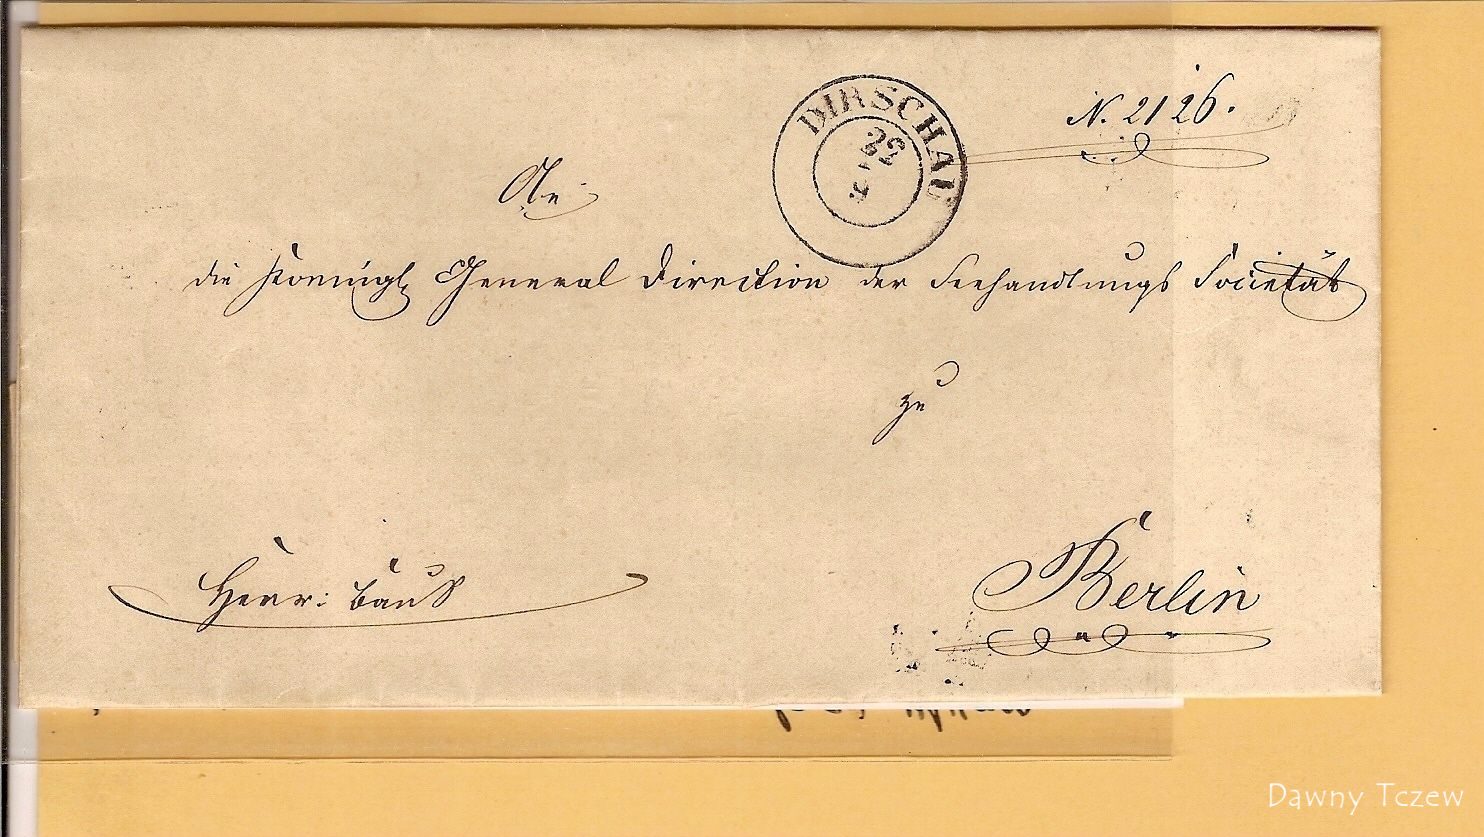 DIRSCHAU
22
N. 2126.
An
die Koenigl General Direction der Seehandlungs Societät
zu
Berlin
Herr:
Dawny Tczew